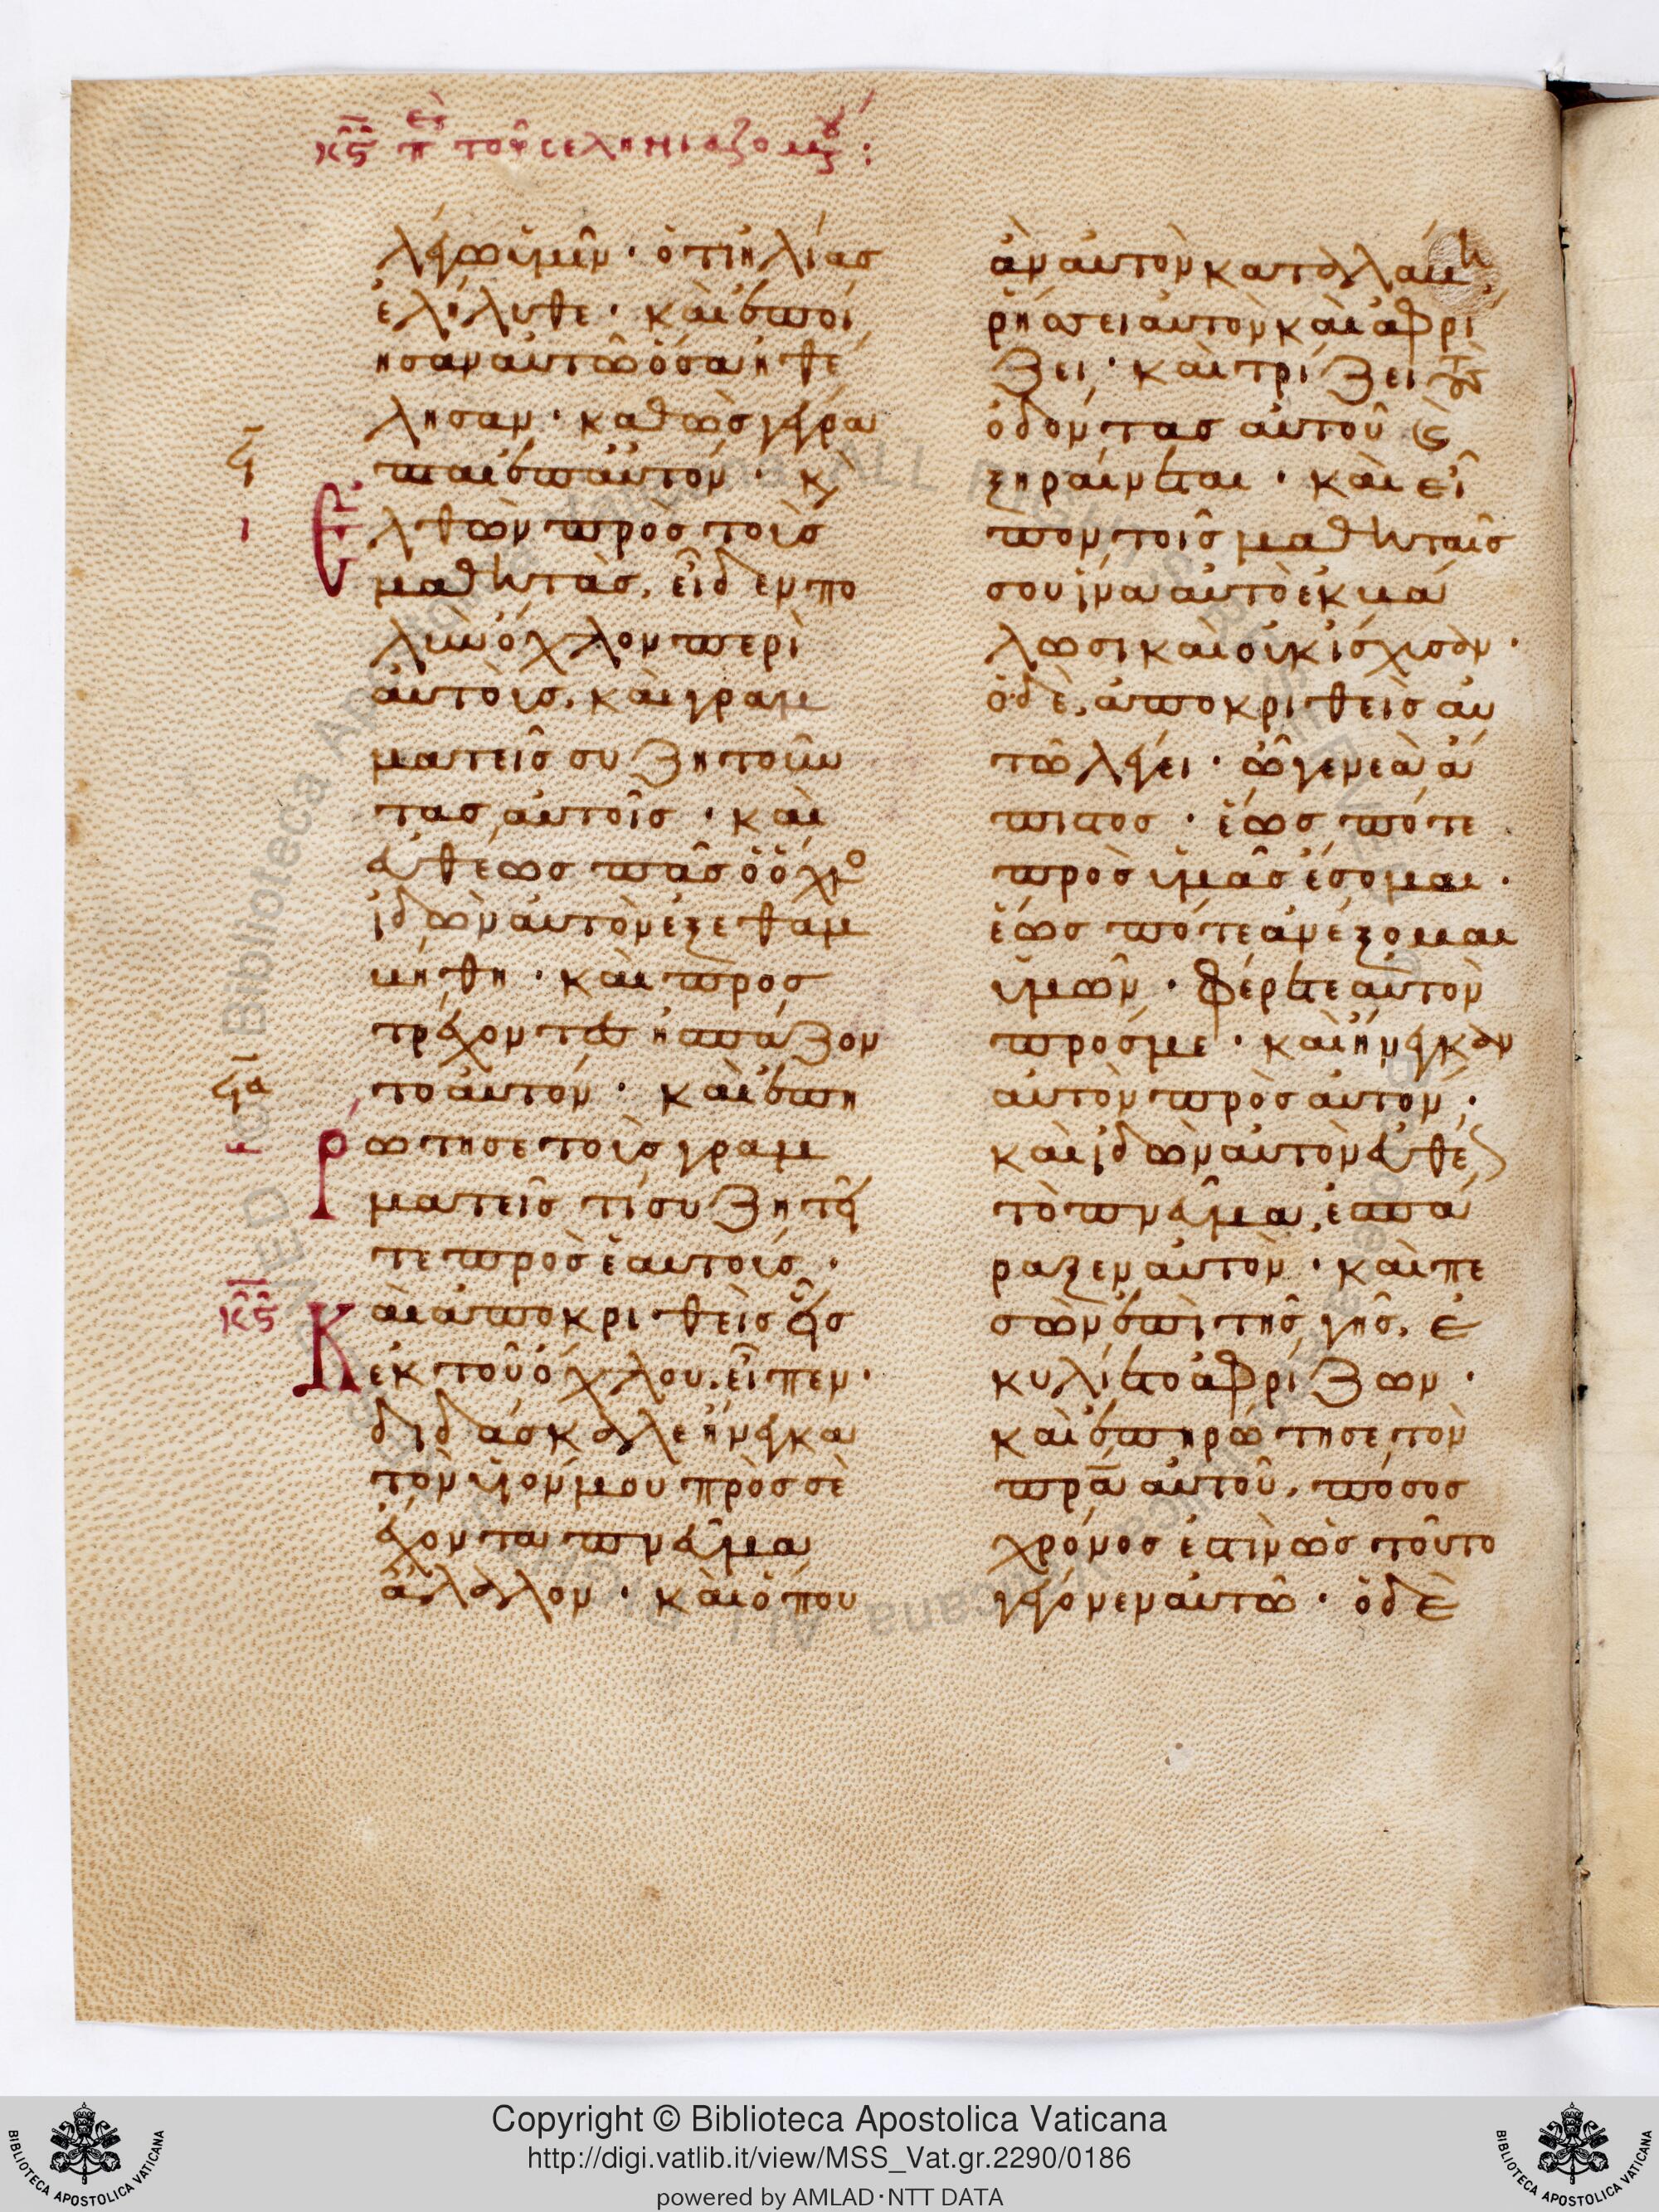 κϛ πε τοῦ σεληνιαζομένου:
λέγω ὑμῖν· ὅτι ἠλίας
ἐλήλυθε· καὶ ἐποί
ησαν αὐτῶ ὅσα ἠθέ
λησαν· καθὼς γέγρα
πται ἐπ αὐτόν· κ(αὶ)
ϟ
ι
Ελθὼν προς τοὺς
μαθητὰς, εἶδεν πο
λὺν ὄχλον περὶ
αὐτοὺς, καὶ γραμ
ματεῖς συζητοῦν
τας αὐτοῖς· καὶ
εὐθέως πᾶς ὁ ὄχλο
ἰδὼν αὐτὸν ἐξεθαμ
βήθη· καὶ προσ
τρέχοντες ἠσπάζον
το αὐτόν· καὶ ἐπη
ϟα
Ρώτησε τοὺς γραμ
ματεῖς τί συζητεῖ
τε πρὸς ἑαυτούς·
κϛ
Καὶ ἀποκριθεὶς εἷς
ἐκ τοῦ ὄχλου, εἶπεν·
διδάσκαλε ἤνεγκα
τὸν υἱόν μου πρὸς σὲ
ἔχοντα πνεῦμα
ἄλαλον· καὶ ὅπου
ἂν αὐτὸν καταλάβη,
ῥήσσει αὐτὸν καὶ ἀφρί
ζει· καὶ τρίζει τοὺς
ὀδόντας αὐτοῦ κ(αὶ)
ξηραίνεται· καὶ εἶ
πον τοῖς μαθηταῖς
σου ἵνα αὐτὸ ἐκβά
λωσι καὶ οὐκ ἴσχυσαν·
ὁ δὲ, ἀποκριθεὶς αὐ
τῶ λέγει· ὦ γενεὰ ἄ
πιστος· ἕως πότε
πρὸς ὑμᾶς ἔσομαι·
ἕως πότε ἀνέξομαι
ὑμῶν· φέρετε αὐτὸν
πρός με· καὶ ἤνεγκαν
αὐτὸν πρὸς αὐτόν·
καὶ ἰδὼν αὐτὸν εὐθέ(ως)
τὸ πνεῦμα, ἐσπά
ραξεν αὐτὸν· καὶ πε
σὼν ἐπὶ τῆς γῆς, ἐ
κυλίετο ἀφρίζων·
καὶ ἐπηρώτησε τὸν
πρα αὐτοῦ, πόσος
χρόνος ἐστὶν ὡς τοῦτο
γέγονεν αὐτῶ· ὁ δὲ
Copyright © Biblioteca Apostolica Vaticana
http://digi.vatlib.it/view/MSS_Vat.gr.2290/0186
powered by AMLAD·NTT DATA
BIBLIOTECA APOSTOLICA VATICANA
BIBLIOTECA APOSTOLICA VATICANA